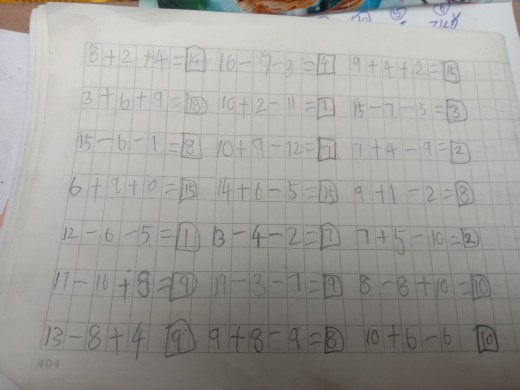 8+2+4=14 16-9-3=4 9+4+2=15
3+6+9=18 10+2-11=1 15-7-5=3
15-6-1=8 10+9-12=7 7+4-9=2
6+9+0=15 14+6-5=15 9+1-2=8
12-6-5=1 13-4-2=7 7+5-10=2
17-16+8=9 19-3-7=9 8-8+10=10
13-8+4 9 9+8-9=8 10+6-6 10
404